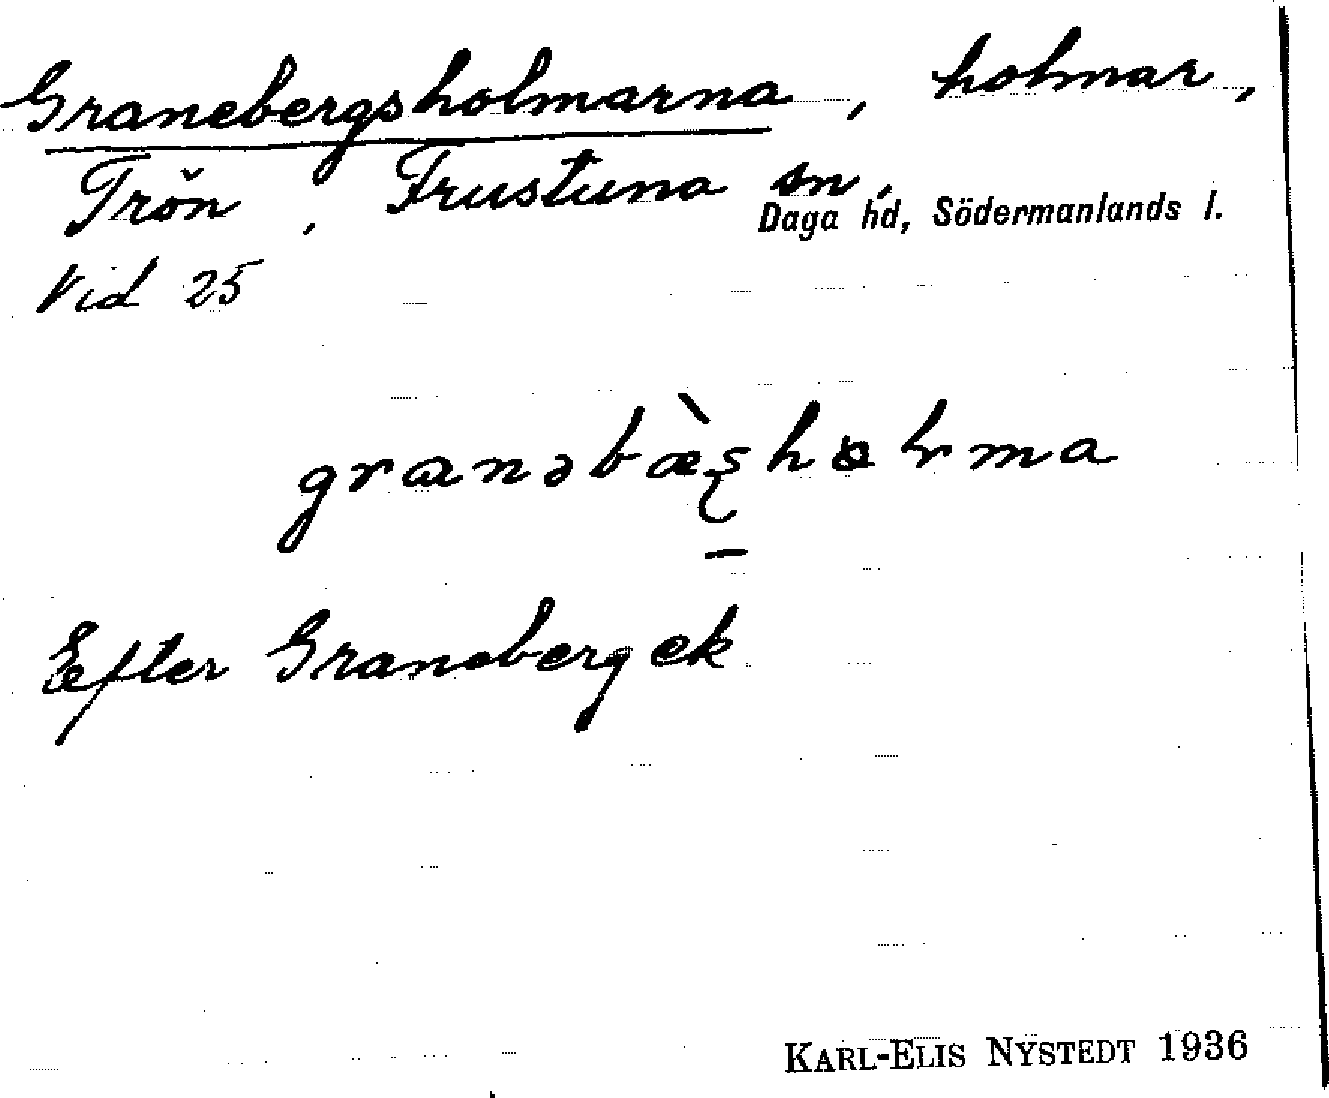 Granebergsholmarna, holmar,
Trön, Frustuna sn,
Daga hd, Södermanlands l.
Vid 25
Efter Graneberg ek
KARL-ELIS NYSTEDT 1936